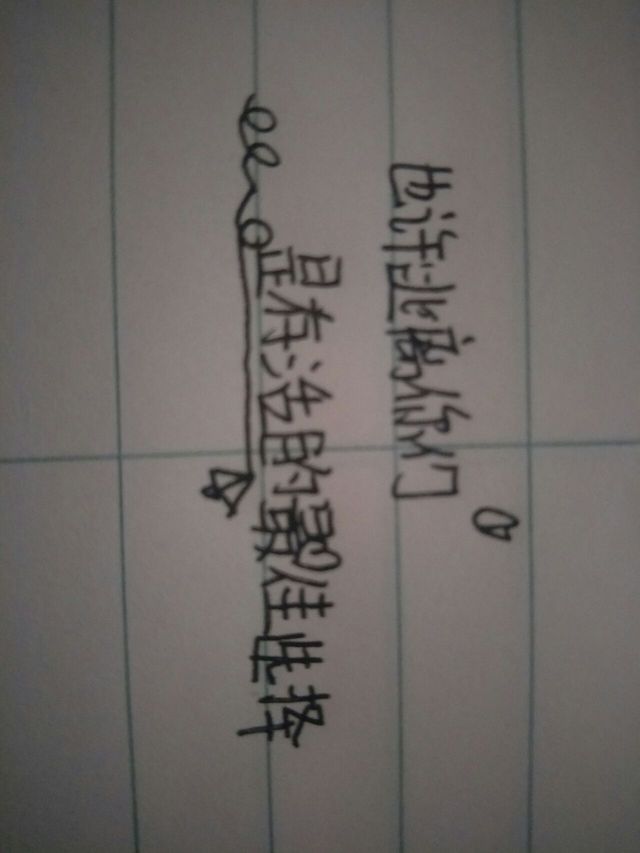 也许逃离你们
是存活的最佳选择